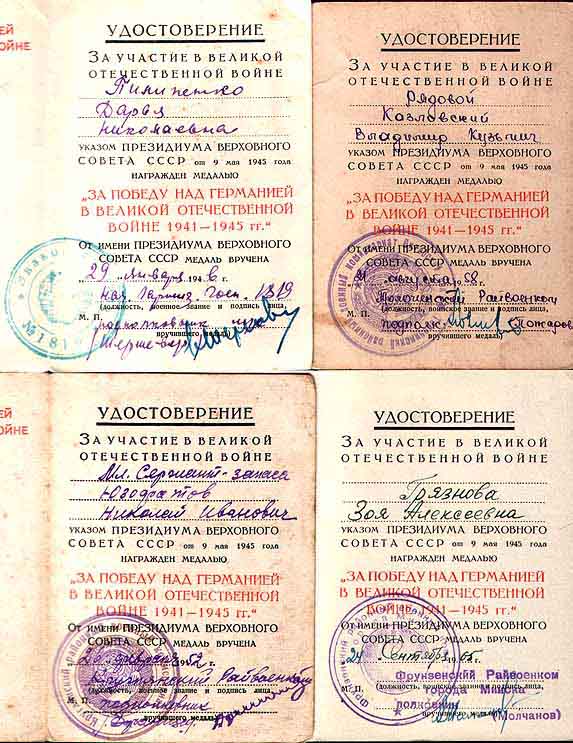 ЕЙ
ОЙНЕ
УДОСТОВЕРЕНИЕ
ЗА УЧАСТИЕ В ВЕЛИКОЙ
ОТЕЧЕСТВЕННОЙ ВОЙНЕ
Пилипенко
Дарья
Николаевна
УКАЗОМ ПРЕЗИДИУМА ВЕРХОВНОГО
СОВЕТА СССР от 9 мая 1945 года
НАГРАЖДЕН МЕДАЛЬЮ
„ЗА ПОБЕДУ НАД ГЕРМАНИЕЙ
В ВЕЛИКОЙ ОТЕЧЕСТВЕННОЙ
ВОЙНЕ 1941—1945 гг.“
От имени ПРЕЗИДИУМА ВЕРХОВНОГО
СОВЕТА СССР МЕДАЛЬ ВРУЧЕНА
29 января 1946 г.
нач. гарниз. госп. 1819
(должность, воинское звание и подпись лица,
М. П.
подполковник
вручившего медаль)
УДОСТОВЕРЕНИЕ
ЗА УЧАСТИЕ В ВЕЛИКОЙ
ОТЕЧЕСТВЕННОЙ ВОЙНЕ
Рядовой
Казловский
Владимир Кузьмич
УКАЗОМ ПРЕЗИДИУМА ВЕРХОВНОГО
СОВЕТА СССР от 9 мая 1945 года
НАГРАЖДЕН МЕДАЛЬЮ
„ЗА ПОБЕДУ НАД ГЕРМАНИЕЙ
В ВЕЛИКОЙ ОТЕЧЕСТВЕННОЙ
ВОЙНЕ 1941—1945 гг.“
От имени ПРЕЗИДИУМА ВЕРХОВНОГО
СОВЕТА СССР МЕДАЛЬ ВРУЧЕНА
августа 1958 г.
Райвоенком
(должность, воинское звание и подпись лица,
М. П.
подполк.
вручившего медаль)
ЕЙ
ОЙНЕ
УДОСТОВЕРЕНИЕ
ЗА УЧАСТИЕ В ВЕЛИКОЙ
ОТЕЧЕСТВЕННОЙ ВОЙНЕ
Мл. Сержант-запаса
Николай Иванович
УКАЗОМ ПРЕЗИДИУМА ВЕРХОВНОГО
СОВЕТА СССР от 9 мая 1945 года
НАГРАЖДЕН МЕДАЛЬЮ
„ЗА ПОБЕДУ НАД ГЕРМАНИЕЙ
В ВЕЛИКОЙ ОТЕЧЕСТВЕННОЙ
ВОЙНЕ 1941—1945 гг.“
От имени ПРЕЗИДИУМА ВЕРХОВНОГО
СОВЕТА СССР МЕДАЛЬ ВРУЧЕНА
февраля 1952 г.
Райвоенком
(должность, воинское звание и подпись лица,
М. П.
подполковник
вручившего медаль)
УДОСТОВЕРЕНИЕ
ЗА УЧАСТИЕ В ВЕЛИКОЙ
ОТЕЧЕСТВЕННОЙ ВОЙНЕ
Грязнова
Зоя Алексеевна
УКАЗОМ ПРЕЗИДИУМА ВЕРХОВНОГО
СОВЕТА СССР от 9 мая 1945 года
НАГРАЖДЕН МЕДАЛЬЮ
„ЗА ПОБЕДУ НАД ГЕРМАНИЕЙ
В ВЕЛИКОЙ ОТЕЧЕСТВЕННОЙ
ВОЙНЕ 1941—1945 гг.“
От имени ПРЕЗИДИУМА ВЕРХОВНОГО
СОВЕТА СССР МЕДАЛЬ ВРУЧЕНА
Сентября 1965 г.
Фрунзенский Райвоенком
(должность, воинское звание и подпись лица,
М. П.
города Минска
полковник
вручившего медаль)
(Молчанов)